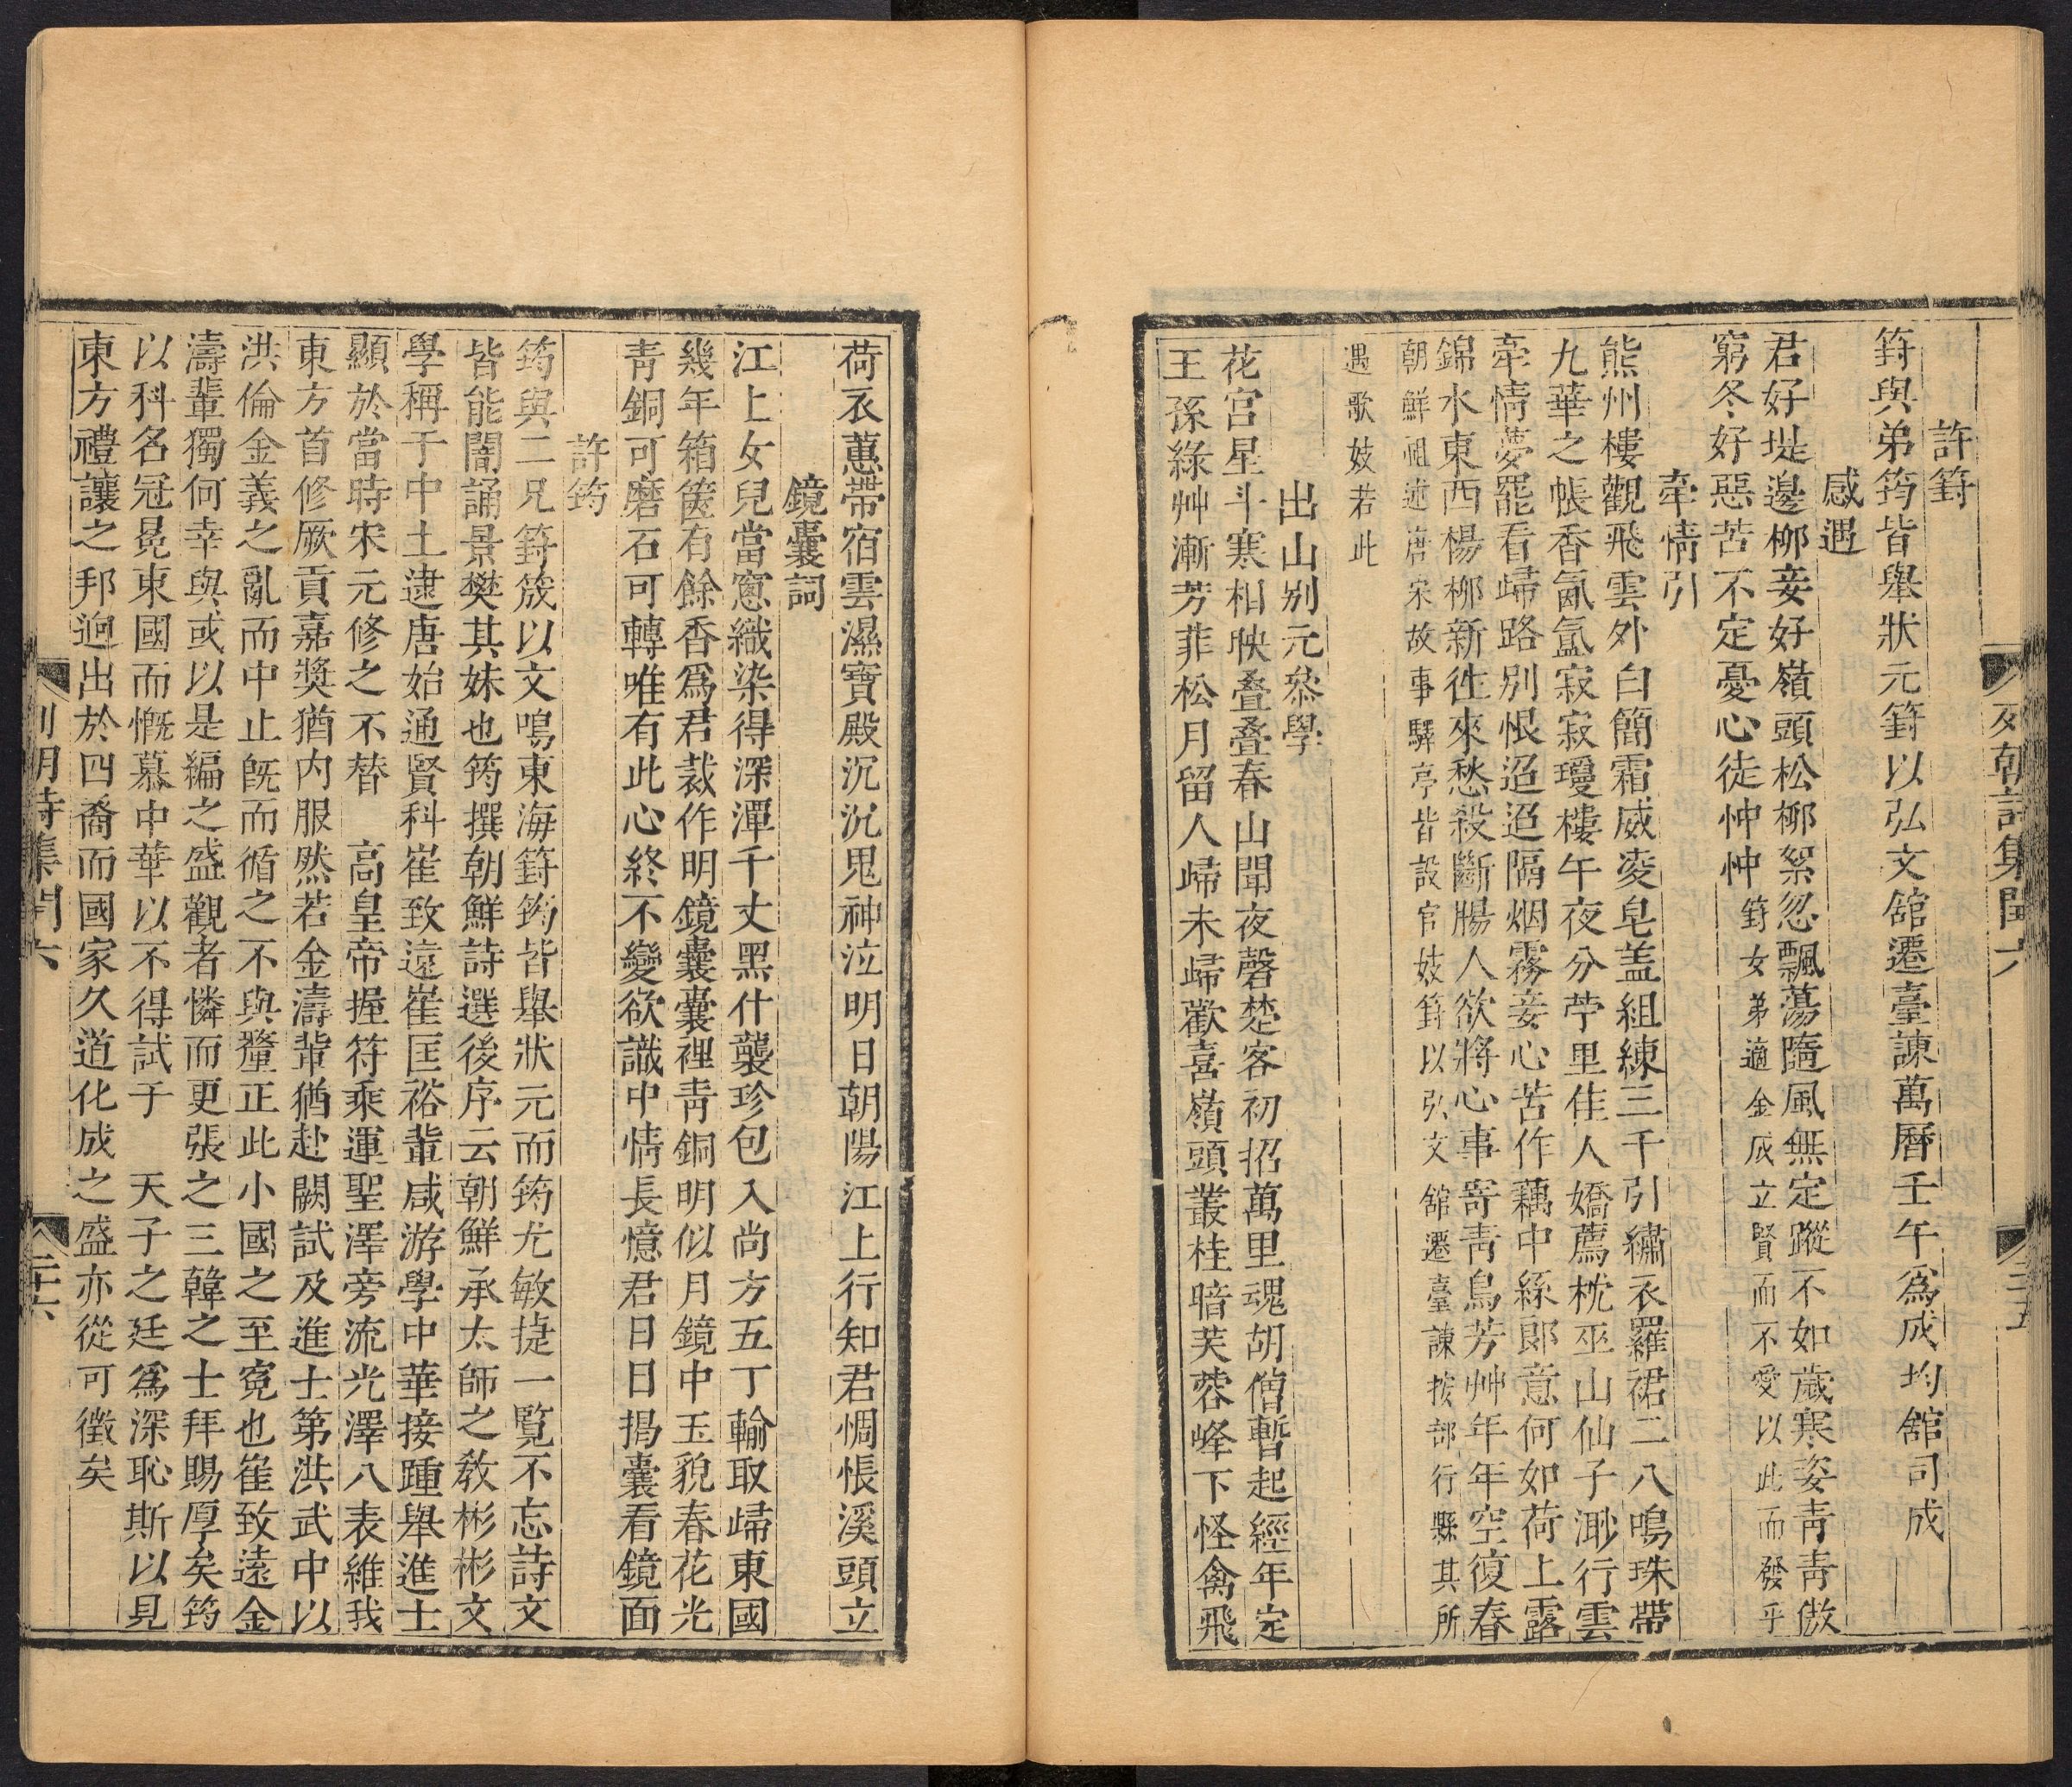 列朝詩集閏六
三五
許篈
篈與弟筠皆舉狀元篈以弘文舘遷臺諫萬曆壬午爲成均舘司成
感遇
君好堤邊柳妾好嶺頭松柳絮忽飄蕩隨風無定蹤不如歲寒姿青青傲
窮冬好惡苦不定憂心徒忡忡篈女弟適金成立賢而不愛以此而發乎
牽情引
熊州樓觀飛雲外白簡霜威夌皂盖組練三千引繡衣羅裙二八鳴珠帶
九華之帳香氤氳寂寂瓊樓午夜分苧里佳人嬌薦枕巫山仙子渺行雲
牽情夢罷看歸路別恨迢迢隔烟霧妾心苦作藕中絲郞意何如荷上露
錦水東西楊柳新徃來愁殺斷腸人欲將心事寄青鳥芳艸年年空復春
朝鮮祖述唐宋故事驛亭皆設官妓篈以弘文舘遷臺諫按部行縣其所
遇歌妓若此
出山别元叅學
花宮星斗寒相映叠叠春山聞夜磬楚客初招萬里魂胡僧暫起經年定
王孫綠艸漸芳菲松月留人歸未歸歡喜嶺頭叢桂暗芙蓉峰下怪禽飛
荷衣蕙帶宿雲濕寶殿沉沉鬼神泣明日朝陽江上行知君惆悵溪頭立
鏡囊詞
江上女兒當窻織染得深潭千丈黑什襲珍包入尚方五丁輸取歸東國
幾年箱篋有餘香爲君裁作明鏡囊囊裡青銅明似月鏡中玉貌春花光
青銅可磨石可轉唯有此心終不變欲識中情長憶君日日揭囊看鏡面
許筠
筠與二兄篈筬以文鳴東海篈筠皆舉狀元而筠尤敏捷一覽不忘詩文
皆能闇誦景樊其妹也筠撰朝鮮詩選後序云朝鮮承太師之敎彬彬文
學稱于中土逮唐始通賢科崔致遠崔匡裕輩咸游學中華接踵舉進士
顯於當時宋元修之不替　高皇帝握符乘運聖澤旁流光澤八表維我
東方首修厥貢嘉獎猶内服然若金濤輩猶赴闕試及進士第洪武中以
洪倫金義之亂而中止旣而循之不與釐正此小國之至寃也崔致遠金
濤輩獨何幸與或以是編之盛觀者憐而更張之三韓之士拜賜厚矣筠
以科名冠冕東國而慨慕中華以不得試于　天子之廷爲深恥斯以見
東方禮讓之邦迥出於四裔而國家久道化成之盛亦從可徵矣
列朝詩集閏六
三六